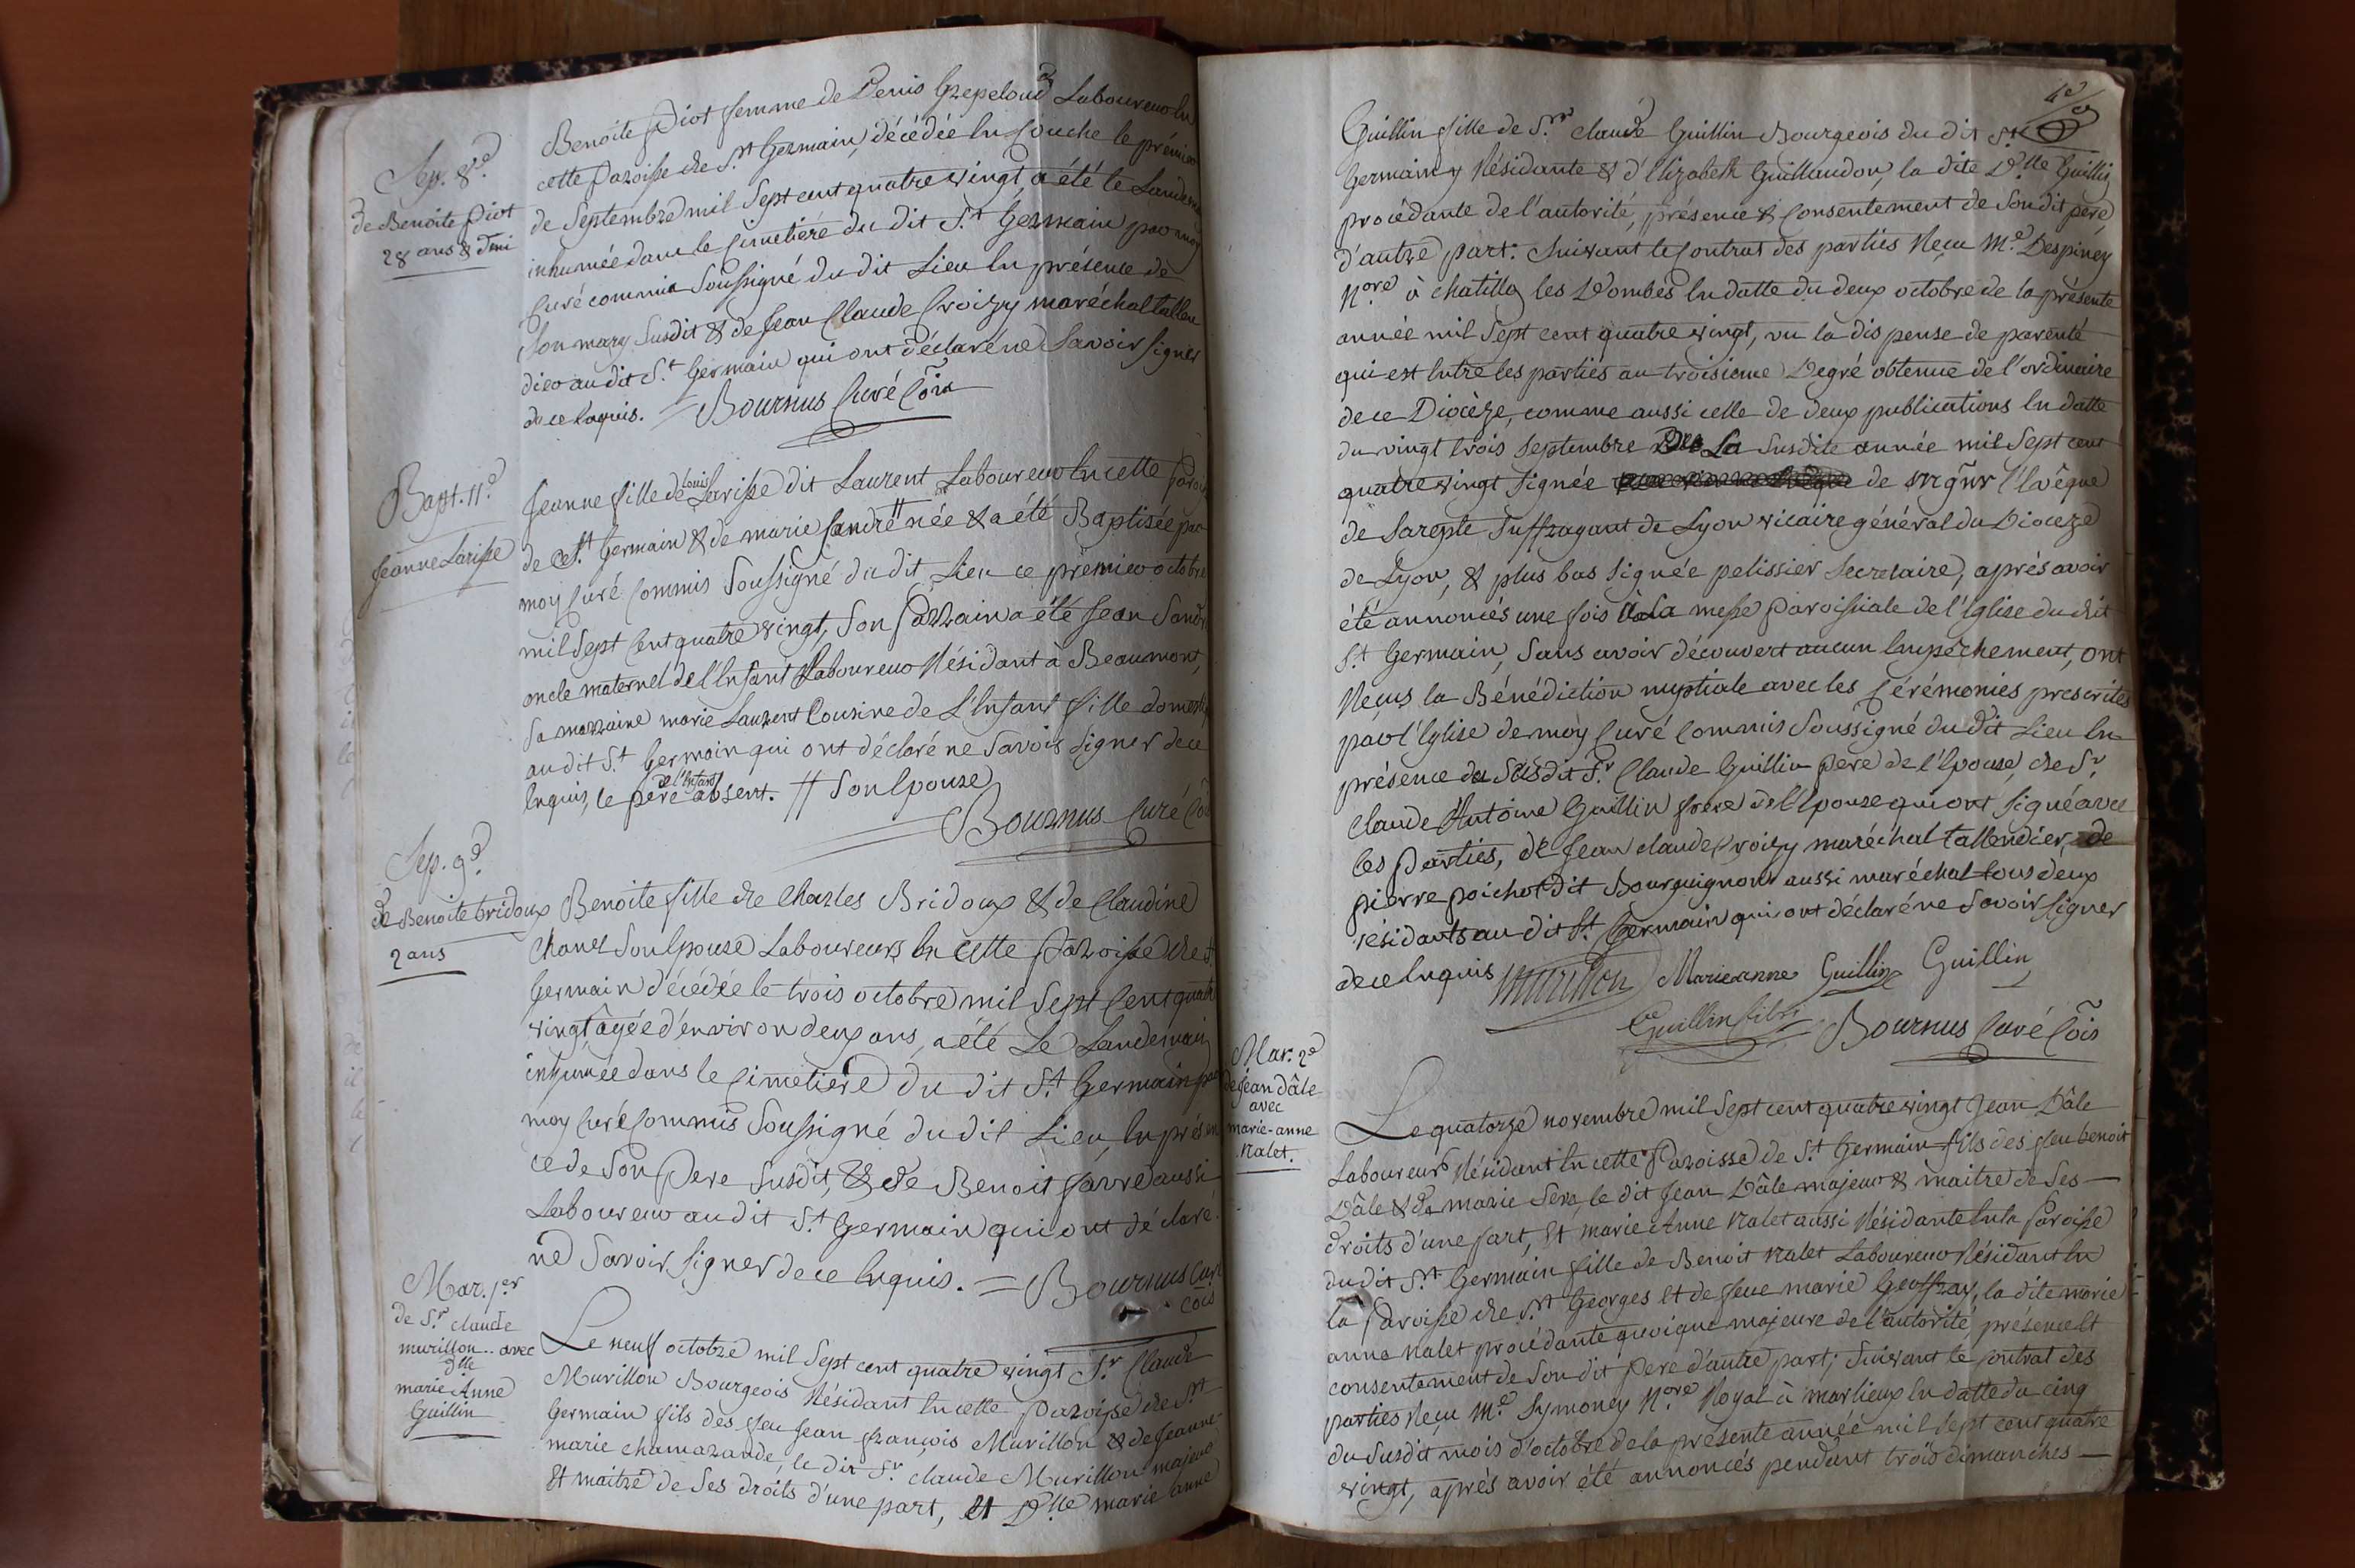 Sep. 8.e
de Benoite Piot
28 ans & dmi
Benoite Piot femme de Denis Grepeloud Laboureur En
cette Paroisse de S.nt Germain, décédée En Couche le prémier
de Septembre mil Sept cent quatre vingt a été le Landemain
inhumée dans le Cimetiére du dit S.t Germain par moy
Curé commis Soussigné du dit Lieu En présence de
Son mary Susdit & de Jean Claude Croizy maréchal tallen
dier au dit S.t Germain qui ont déclaré ne Savoir Signer
de ce Enquis. = Bournus Curé Cõis
Bapt. 11.e
Jeanne Larisse
Jeanne fille de Louis Larisse dit Laurent Laboureur En cette Parois
de St. Germain & de marie Sandre # née & a été Baptisée par
moy Curé Commis Soussigné du dit Lieu ce prémier octobre
mil Sept Cent quatre vingt, Son Parrain a été Jean Sandre
oncle maternel de l'Enfant Laboureur Résidant à Beaumont,
Sa marraine marie Laurent Cousine de L'Enfant fille domesti
au dit S.t Germain qui ont déclaré ne Savoir Signer de ce
Enquis, le pere de l'Enfant absent. # Son Epouse
Bournus Curé Cõis
Sep. 9.e
de Benoite bridoux
2 ans
Benoite fille de Charles Bridoux & de Claudine
Chanel Son Epouse Laboureurs En cette Paroisse de St
Germain décédée le trois octobre mil Sept Cent quatre
vingt, âgée d'environ deux ans, a été Le Landemain
inhumée dans le Cimetiére du dit S.t Germain par
moy Curé Commis Soussigné du dit Lieu, En présen
ce de Son Pere Susdit, & de Benoit favre aussi
Laboureur au dit S.t Germain qui ont déclaré
ne Savoir Signer de ce Enquis. = Bournus Curé
cõis
Mar. 1.er
de S.r claude
murillon .. avec
dlle
marie Anne
Guillin
Le neuf octobre mil Sept cent quatre vingt S.r Claude
Murillon Bourgeois Résidant En cette Paroisse de S.nt
Germain fils des feu Jean françois Murillon & de Jeanne-
marie chamarande, le dit S.r claude Murillon majeur
Et maitre de Ses droits d'une part, Et D.lle marie anne
Guillin fille de S.r claude Guillin Bourgeois du dit St
Germain y Résidante & d'Elizabeth Guillaudon, la dite D.lle Guillin
procédante de l'autorité, présence & Consentement de Son dit pere,
d'autre part: Suivant le Contrat des parties Reçu M.e Despiney
N.ore à chatillon les Dombes En datte du deux octobre de la présente
année mil Sept cent quatre vingt, vu la dispense de parenté
qui est Entre les parties au troisieme Degré obtenue de l'ordinaire
de ce Diocèze, comme aussi celle de deux publications En datte
du vingt trois Septembre De La Susdite année mil Sept cent
quatre vingt Signée de mgñr l'Evêque
de Sarepte Suffragant de Lyon vicaire général du Dioceze
de Lyon, & plus bas Signée pelissier Secretaire, aprés avoir
été annoncés une fois à La messe Paroissiale de l'Eglise du dit
S.t Germain, Sans avoir découvert aucun Empêchement, ont
Reçus la Bénédiction nuptiale avec les Cérémonies prescrites
par l'Eglise de moy Curé Commis Soussigné du dit Lieu En
présence du Susdit S.r Claude Guillin pere de l'Epouse, de S.r
Claude Antoine Guillin frere de l'Epouse qui ont Signé avec
les Parties, de Jean claude Croizy maréchal tallendier, de
pierre poichot dit Bourguignon aussi maréchal tous deux
résidants au dit St. Germain qui ont déclaré ne Savoir Signer
de ce Enquis Murillon Marieanne Guillin Guillin
Guillin fils Bournus Curé Cõis
Mar. 2.e
de Jean Dâle
avec
marie-anne
Nalet.
Le quatorze novembre mil Sept cent quatre vingt Jean Dâle
Laboureur Résidant En cette Paroisse de S.t Germain fils des feu benoit
Dâle & de marie Sera, le dit Jean Dâle majeur & maitre de Ses
droits d'une Part, Et marie Anne Nalet aussi Résidante En la Paroisse
du dit S.nt Germain fille de Benoit Nalet Laboureur Résidant En
la Paroisse de S.nt Georges Et de feue marie Geoffray, la dite marie
anne Nalet procédante quoique majeure de l'autorité, présence Et
consentement de Son dit Pere d'autre part; Suivant le Contrat des
parties Reçu M.e Symoney N.ore Royal à marlieux En datte du cinq
du Susdit mois d'octobre de la présente année mil Sept cent quatre
vingt, aprés avoir été annoncés pendant trois dimanches